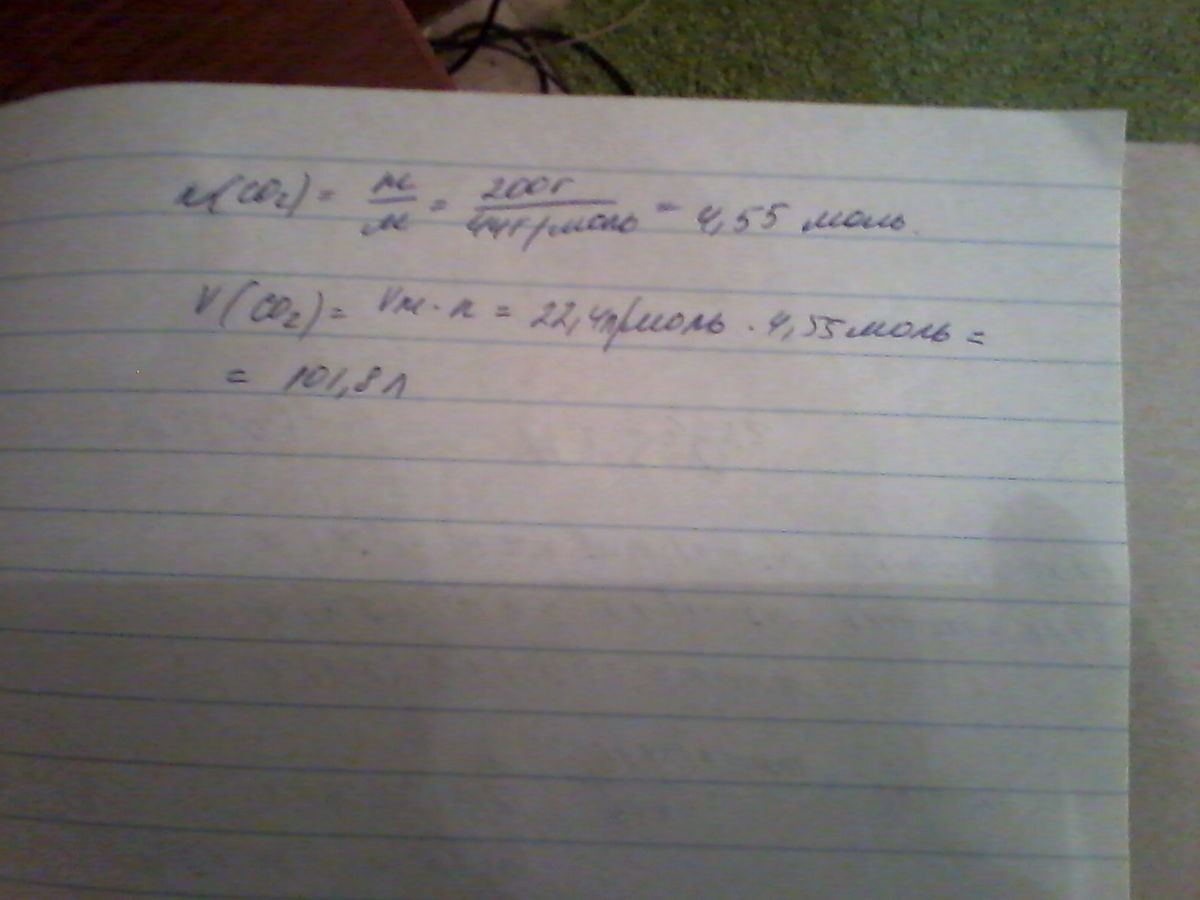 n(CO₂) = m/M = 200г/44г/моль = 4,55 моль.
V(CO₂) = Vm · n = 22,4л/моль · 4,55 моль =
= 101,8 л